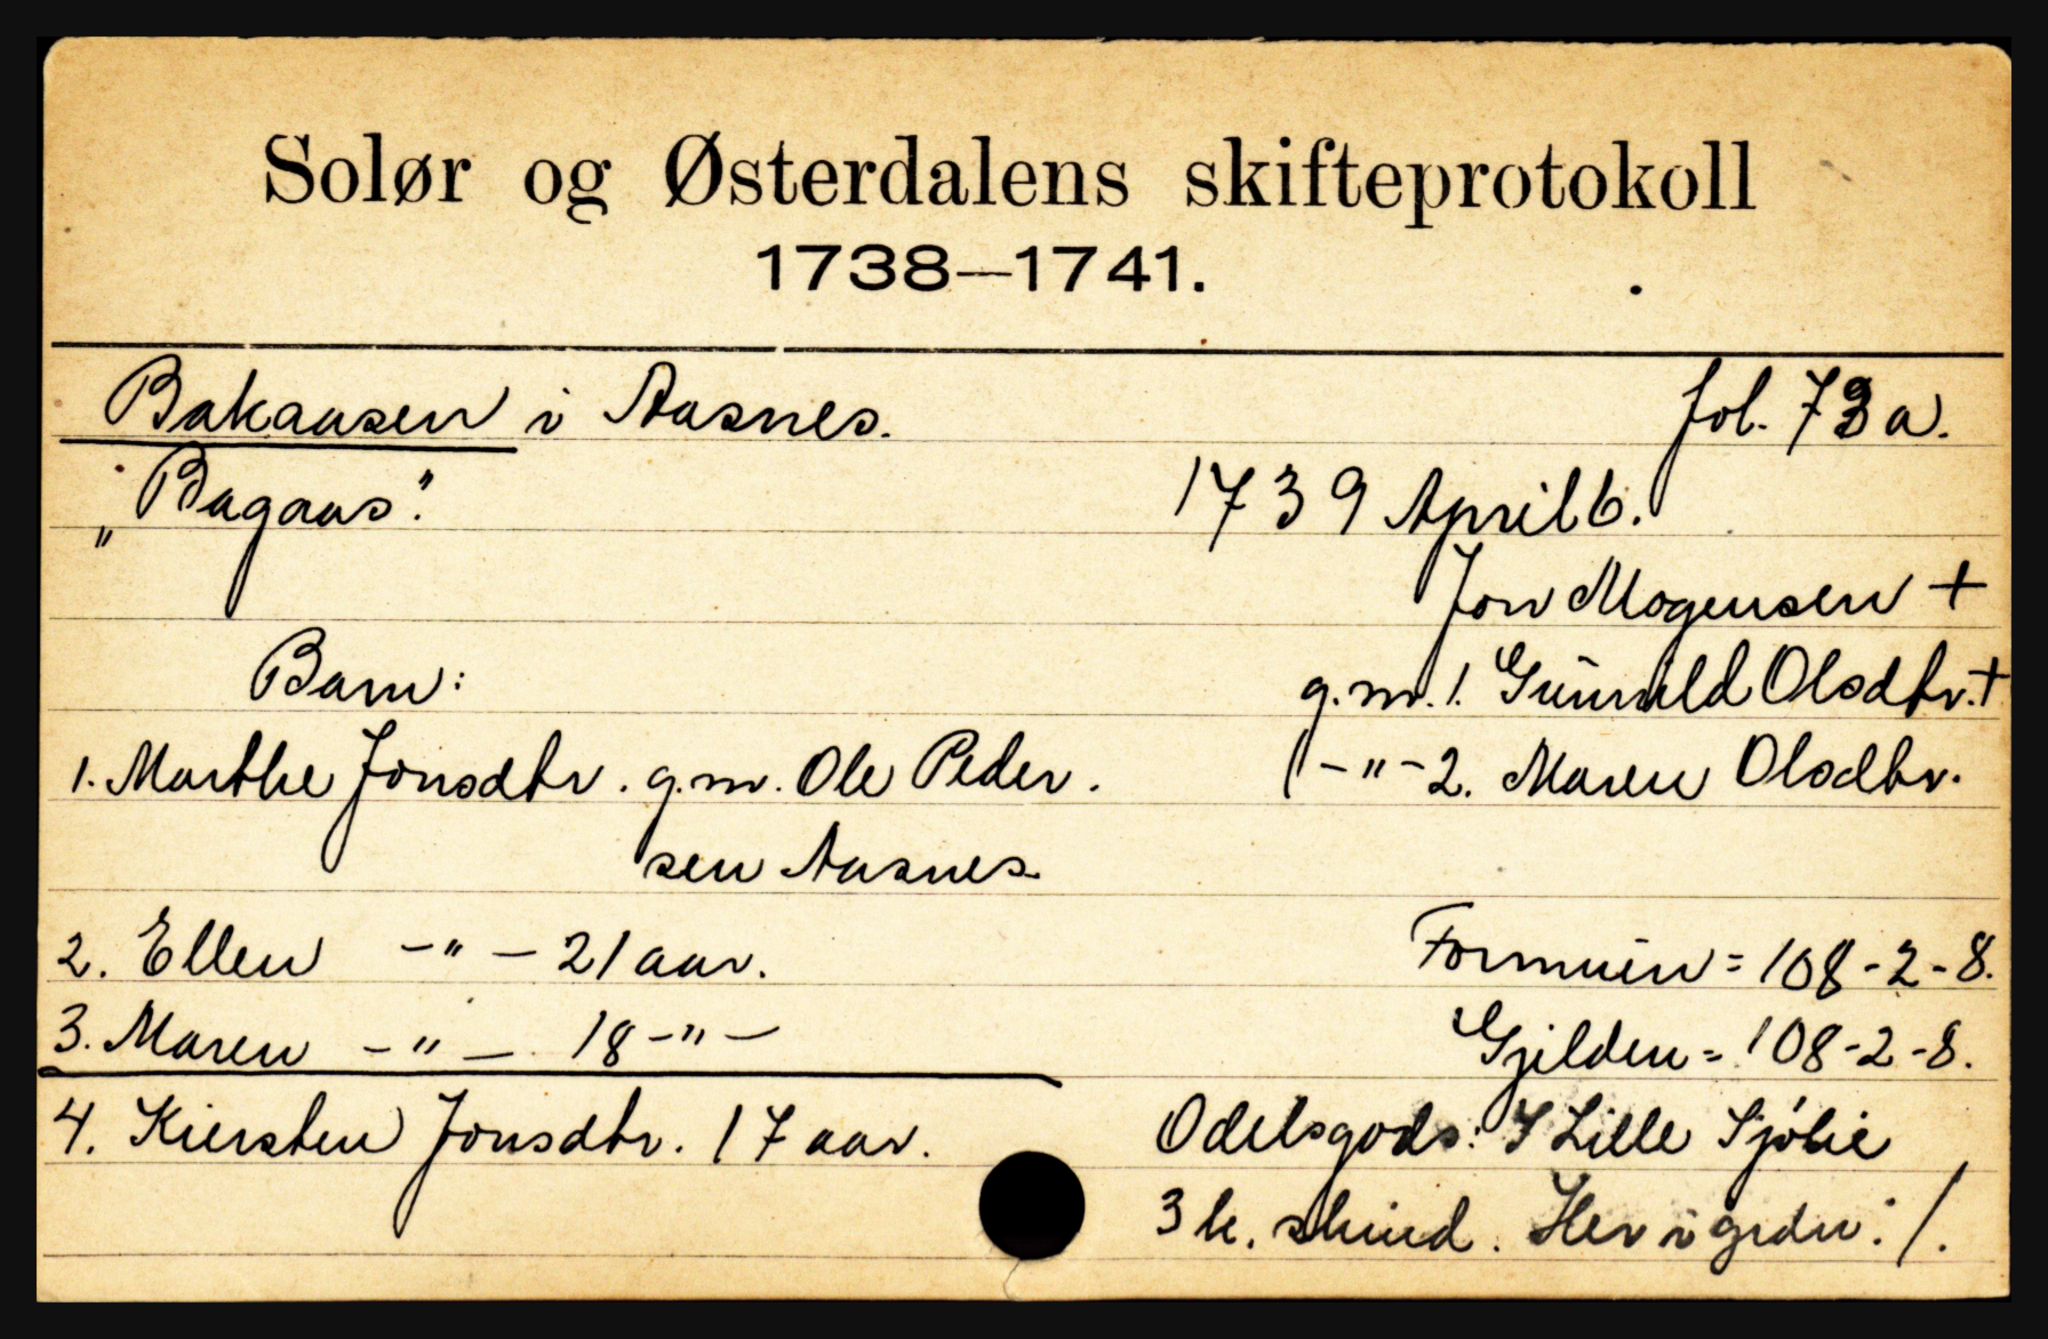 Solør og Østerdalens skifteprotokoll
1738—1741.
Bakaasen i Aasnes. fol. 73a.
„Bagaas". 1739 April 6.
Jon Mogensen +
Barn: g.m. 1. Gunnild Olsdtr. +
1. Marthe Jonsdtr. g.m. Ole Peder- (-"-2. Maren Olsdtr.
sen Aasnes.
2. Ellen -"- 21 aar. Formuen = 108-2-8.
3. Maren -"- 18 -"- Gjelden = 108-2-8.
4. Kiersten Jonsdtr. 17 aar. Odelsgods: I Lille Sjølie
3 h. skind. Her i grdn: /.